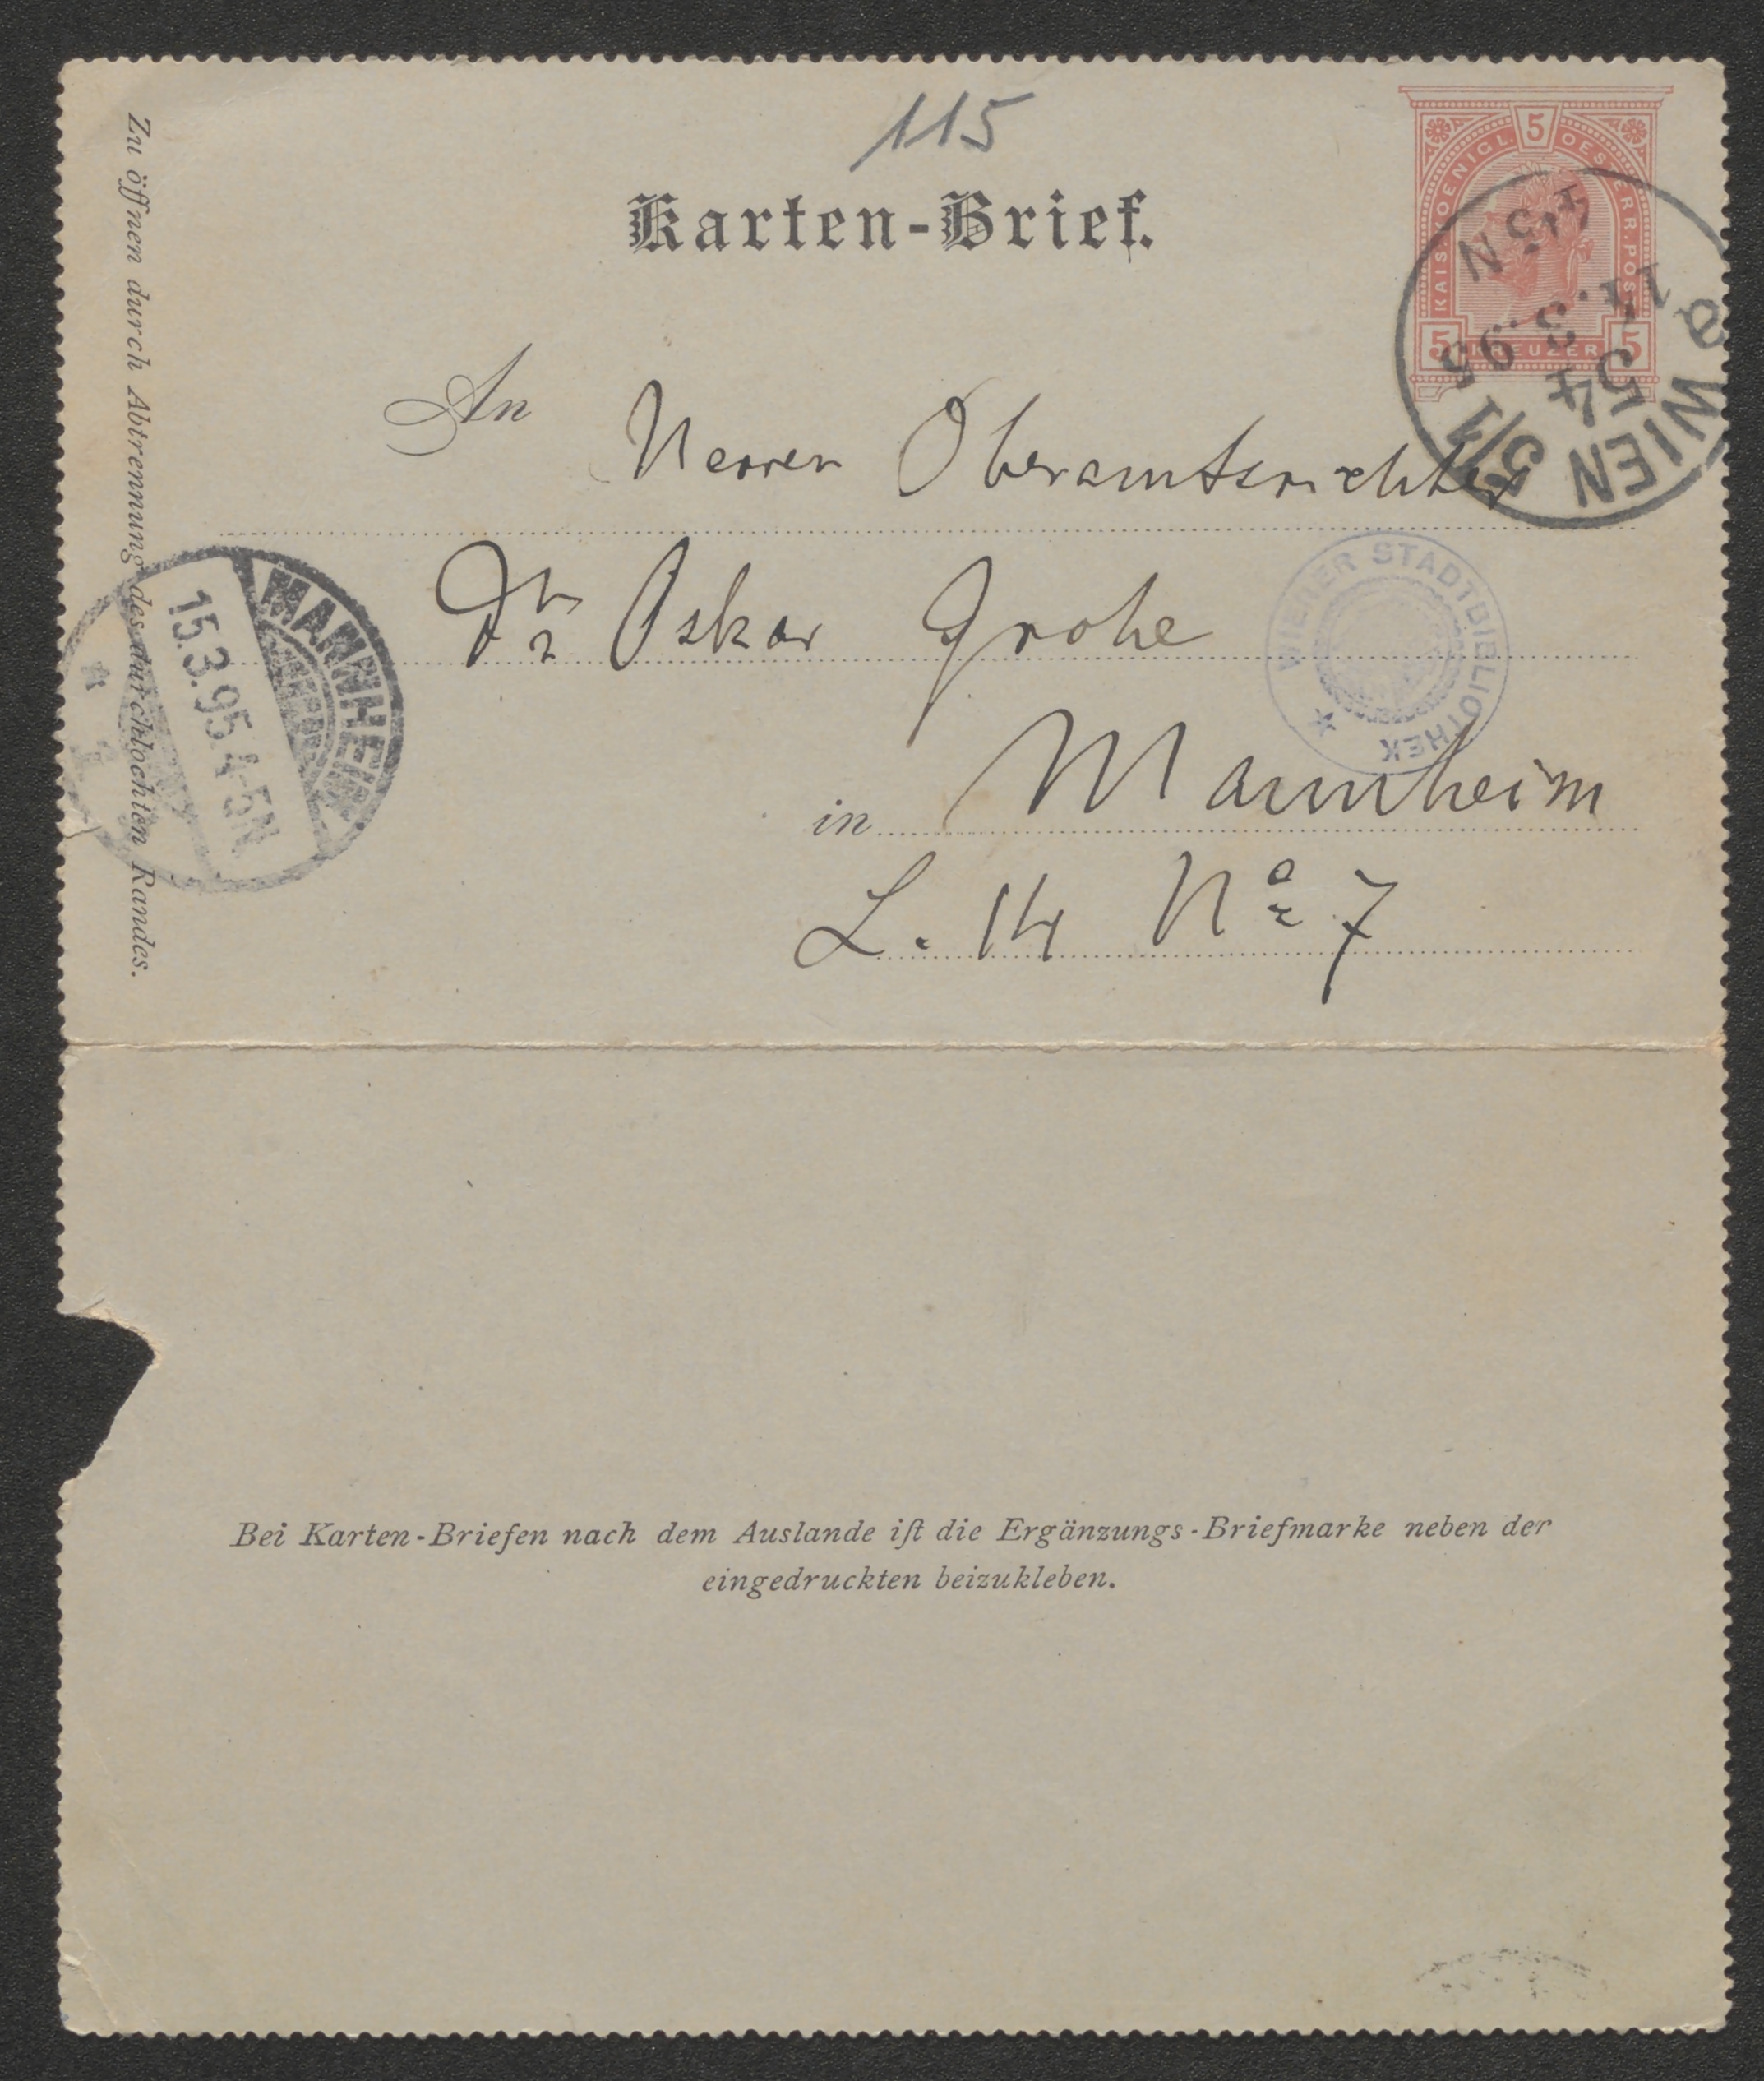 115
Karten-Brief.
KAIS. KOENIGL. OESTERR. POST
5
5 KREUZER 5
WIEN 5/1
54
14.3.95
4.45 N
a
An Herren Oberamtsrichter
Dr Oskar Grohe
WIENER STADTBIBLIOTHEK
in Mannheim
L. 14 No 7
MANNHEIM
15.3.95.4-5N
Zu öffnen durch Abtrennung des durchlochten Randes.
Bei Karten-Briefen nach dem Auslande iſt die Ergänzungs-Briefmarke neben der
eingedruckten beizukleben.